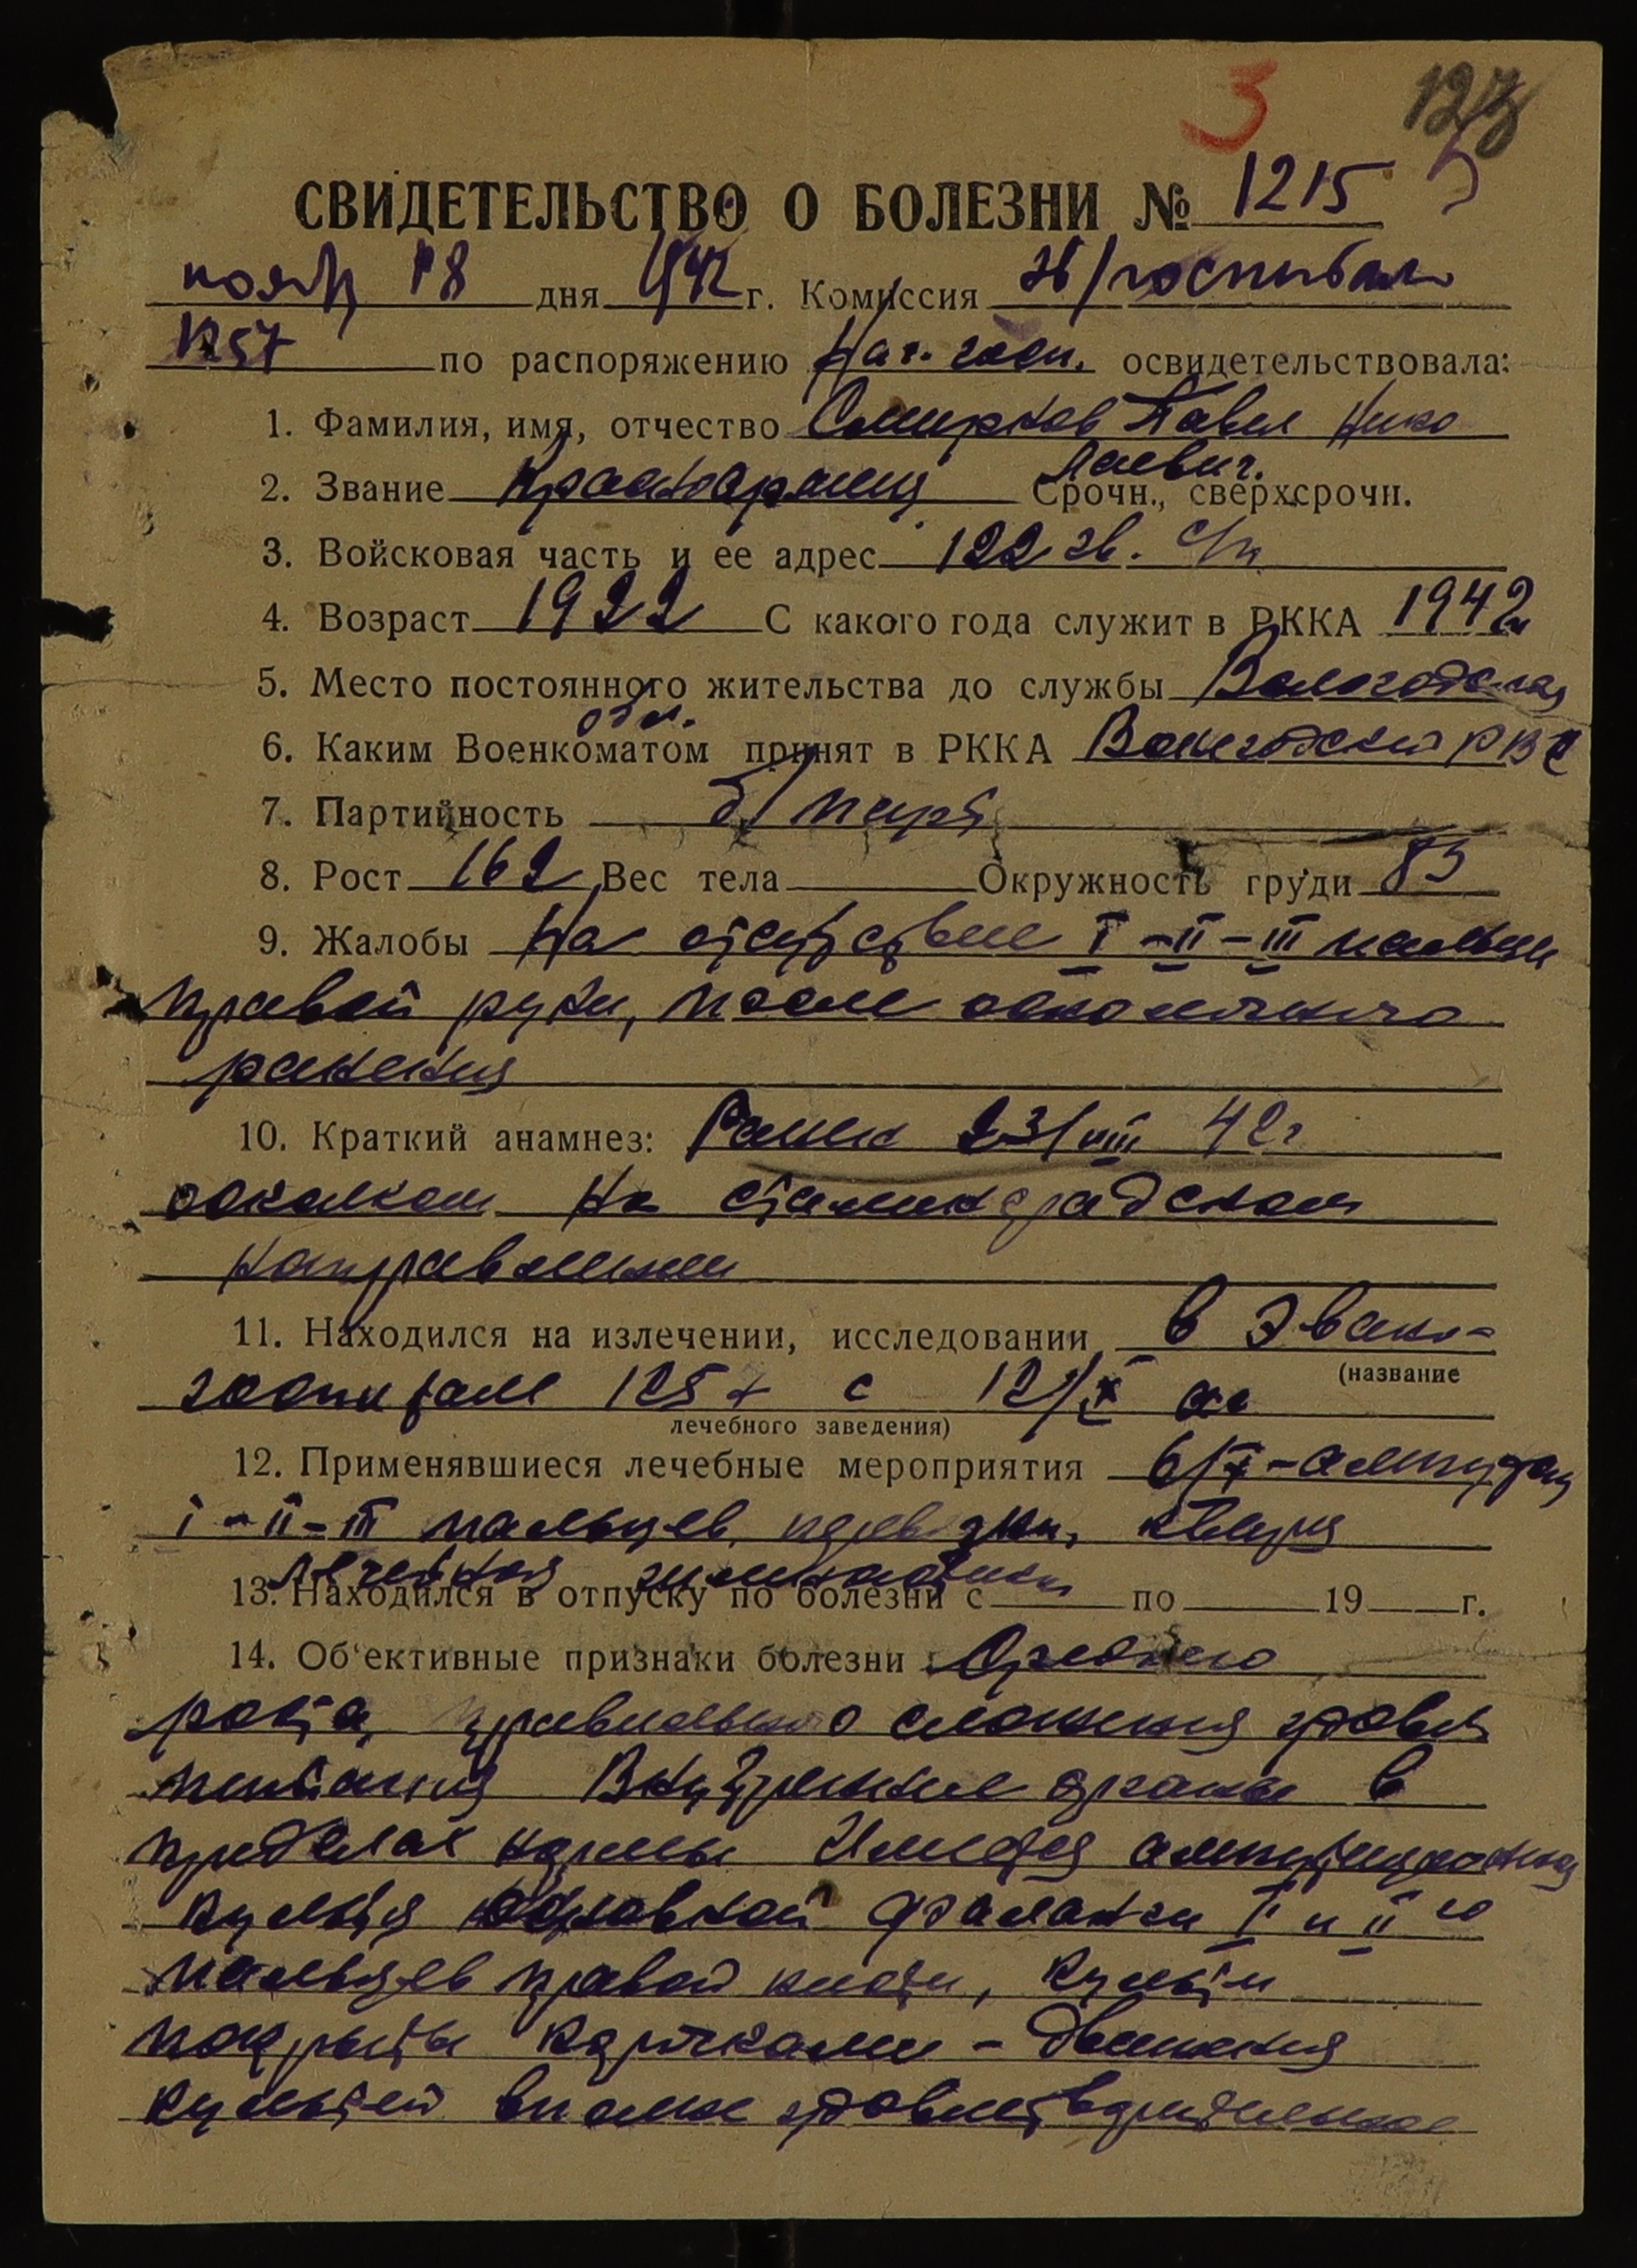 3 127
СВИДЕТЕЛЬСТВО О БОЛЕЗНИ № 1215
ноябр 18 дня 1942 г. Комиссия эв/госпиталь
1257 по распоряжению Нач. госп. освидетельствовала:
1. Фамилия, имя, отчество Смирнов Павел Нико
лаевич.
2. Звание Красноармеец Срочн., сверхсрочн.
3. Войсковая часть и ее адрес 122 гв. с/п
4. Возраст 1922 С какого года служит в РККА 1942
5. Место постоянного жительства до службы Вологодская
обл.
6. Каким Военкоматом принят в РККА Вологодский РВК
7. Партийность б/парт
8. Рост 162 Вес тела Окружность груди 85
9. Жалобы На отсутствие I-II-III пальцев
правой руки, после осколочного
ранения
10. Краткий анамнез: Ранен 23/VIII 42г
осколком на сталинградском
направлении
11. Находился на излечении, исследовании в Эвако-
(название
госпитале 1257 с 12/X
лечебного заведения)
12. Применявшиеся лечебные мероприятия 6/X-ампутац
I-II-III пальцев, перевязки, кварц
лечебная гимнастика
13. Находился в отпуску по болезни с по 19 г.
14. Об'ективные признаки болезни Среднего
роста, правильного сложения удовл
питания Внутренние органы в
пределах нормы Имеется ампутационная
культя основной фаланги I и II го
пальцев правой кисти, культи
покрыты корочками - движения
культей вполне удовлетворительные